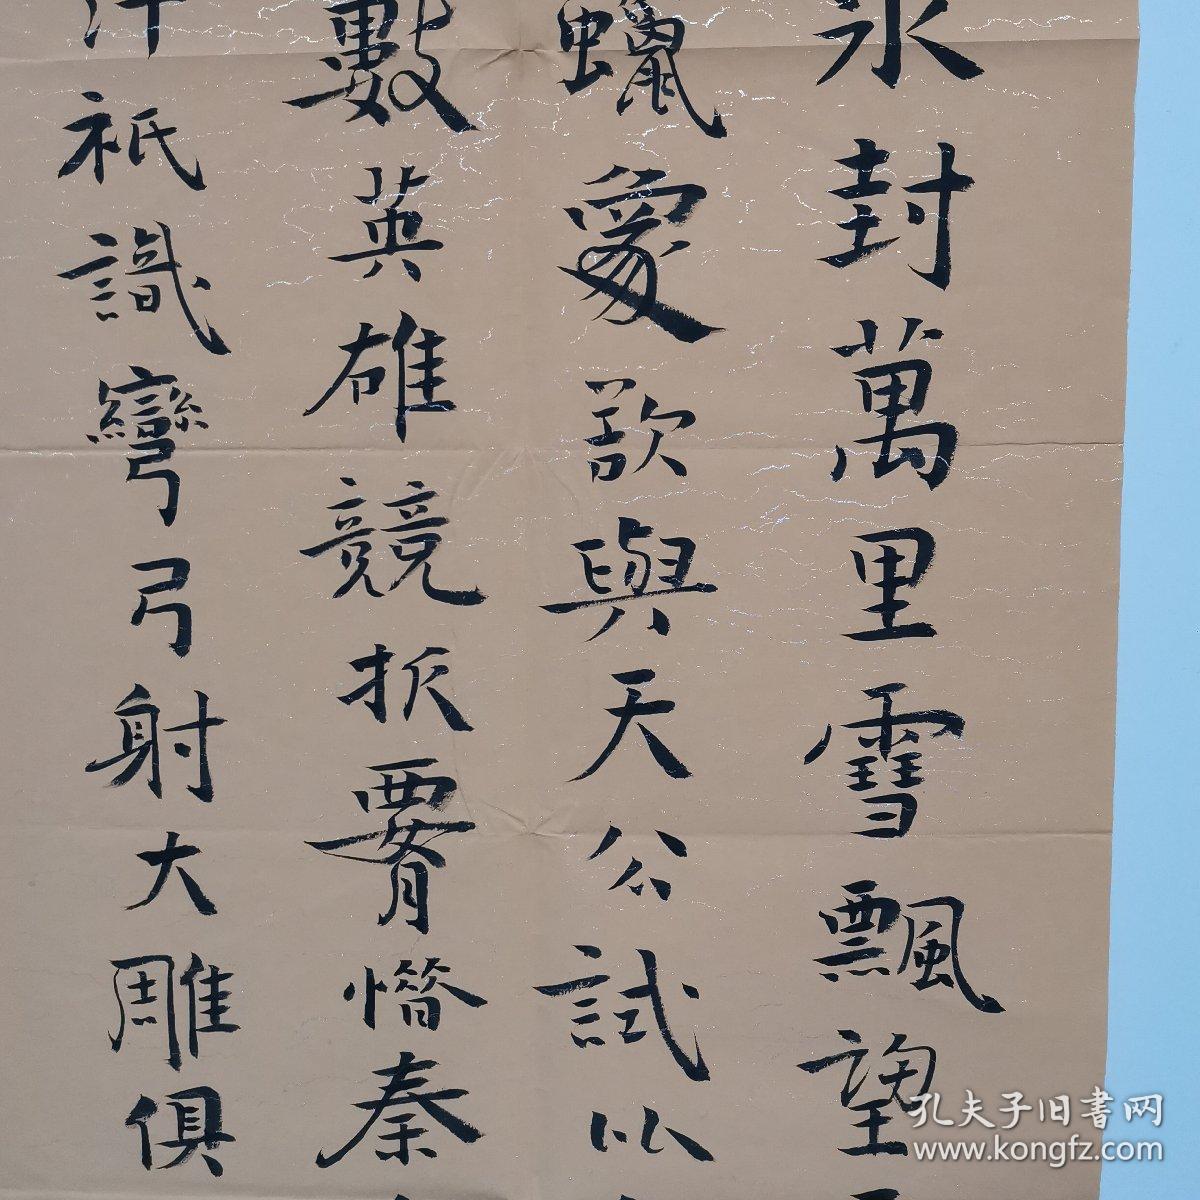 氷封萬里雪飄望
蠟象欲與天公試比
數英雄競折腰惜秦
汗祇識彎弓射大雕俱
孔夫子旧書网
www.kongfz.com